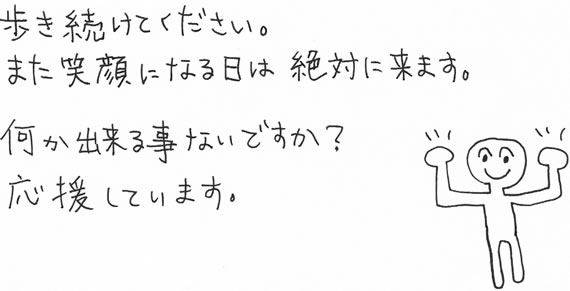 歩き続けてください。
また笑顔になる日は 絶対に来ます。
何か出来る事ないですか?
応援しています。